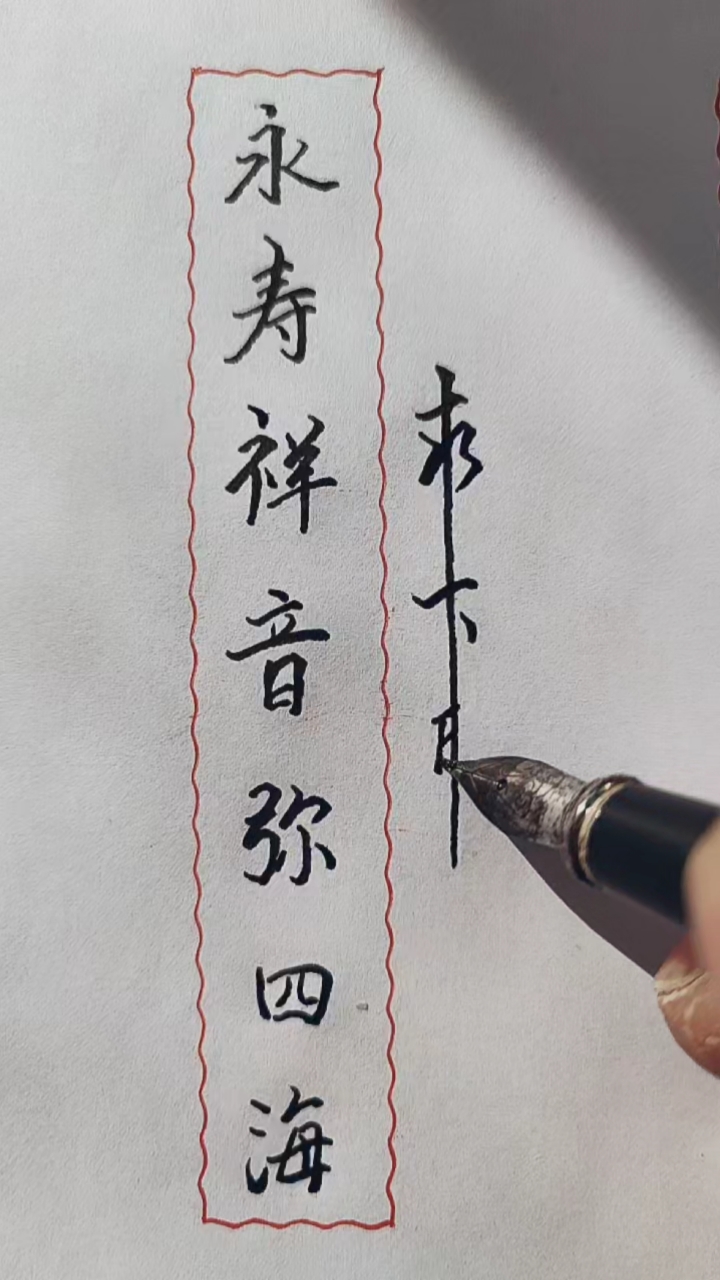 永寿祥音弥四海